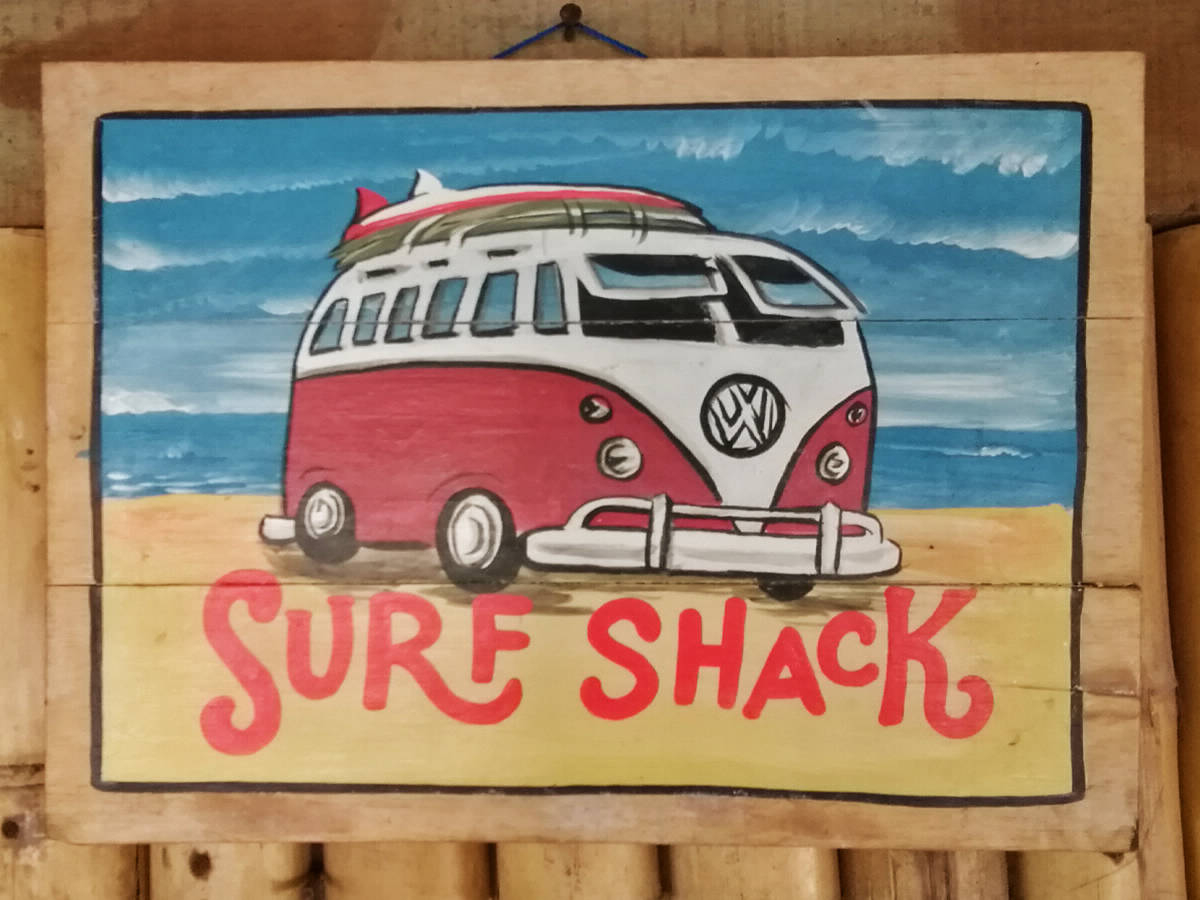 VW
SURF SHACK